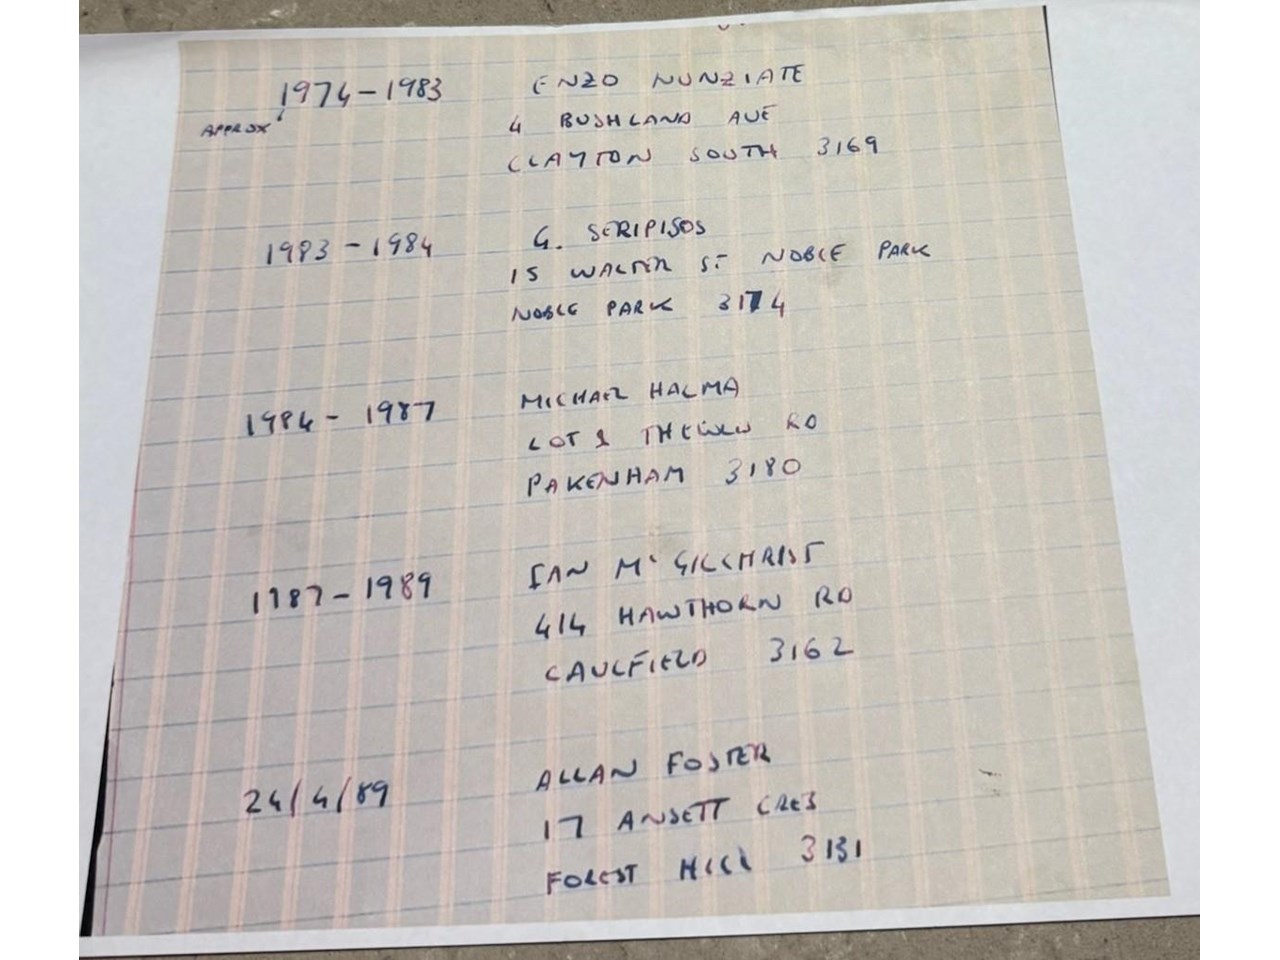 1974 - 1983 ENZO NUNZIATE
APPROX 4 BUSHLAND AVE
CLAYTON SOUTH 3169
1983 - 1984 G. SERIPISOS
15 WALTER ST NOBLE PARK
NOBLE PARK 3174
1984 - 1987 MICHAEL HALMA
LOT 1 RD
PAKENHAM 3180
1987 - 1989 IAN McGILCHRIST
414 HAWTHORN RD
CAULFIELD 3162
24/4/89 ALLAN FOSTER
17 ANSETT CRES
FOREST HILL 3131